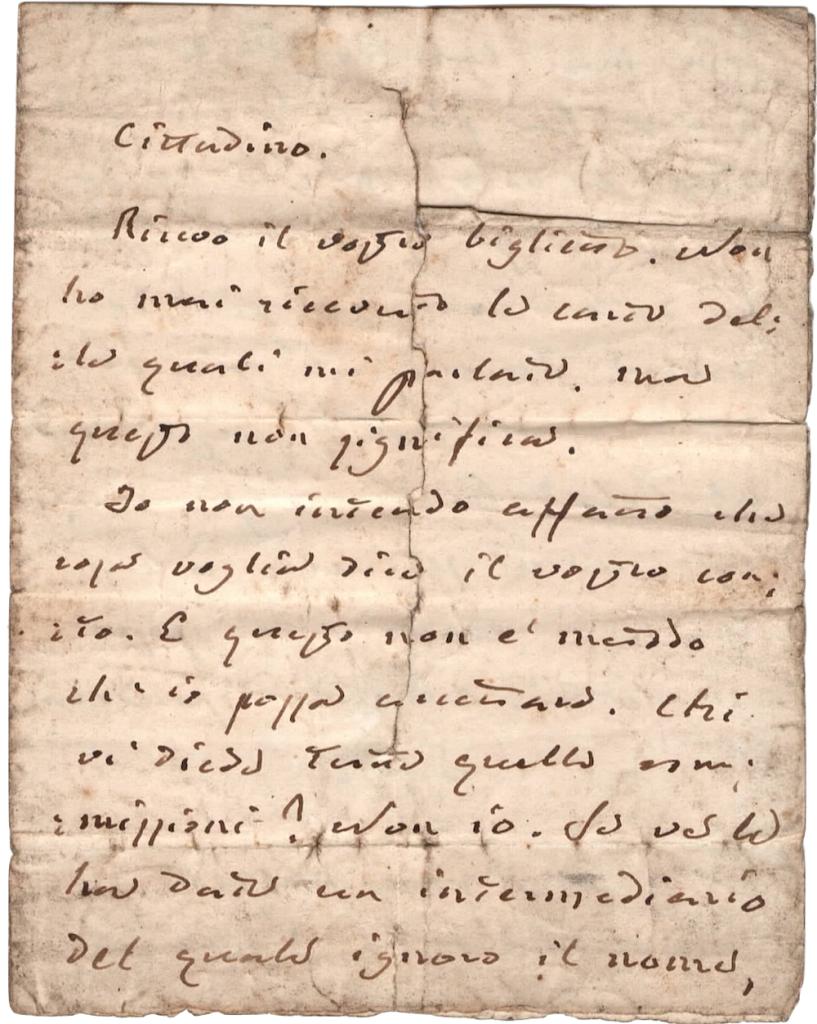 Cittadino.
Ricevo il vostro biglietto. Non
ho mai ricevuto le carte del:
:le quali mi parlate. ma
questo non significa.
Io non intendo affatto che
cosa voglia dire il vostro con:
:to. E questo non e' metodo
ch' io possa accettare. Chi
vi diede tutte quelle com:
:missioni? Non io. Se ve le
ha date un intermediario
del quale ignoro il nome,